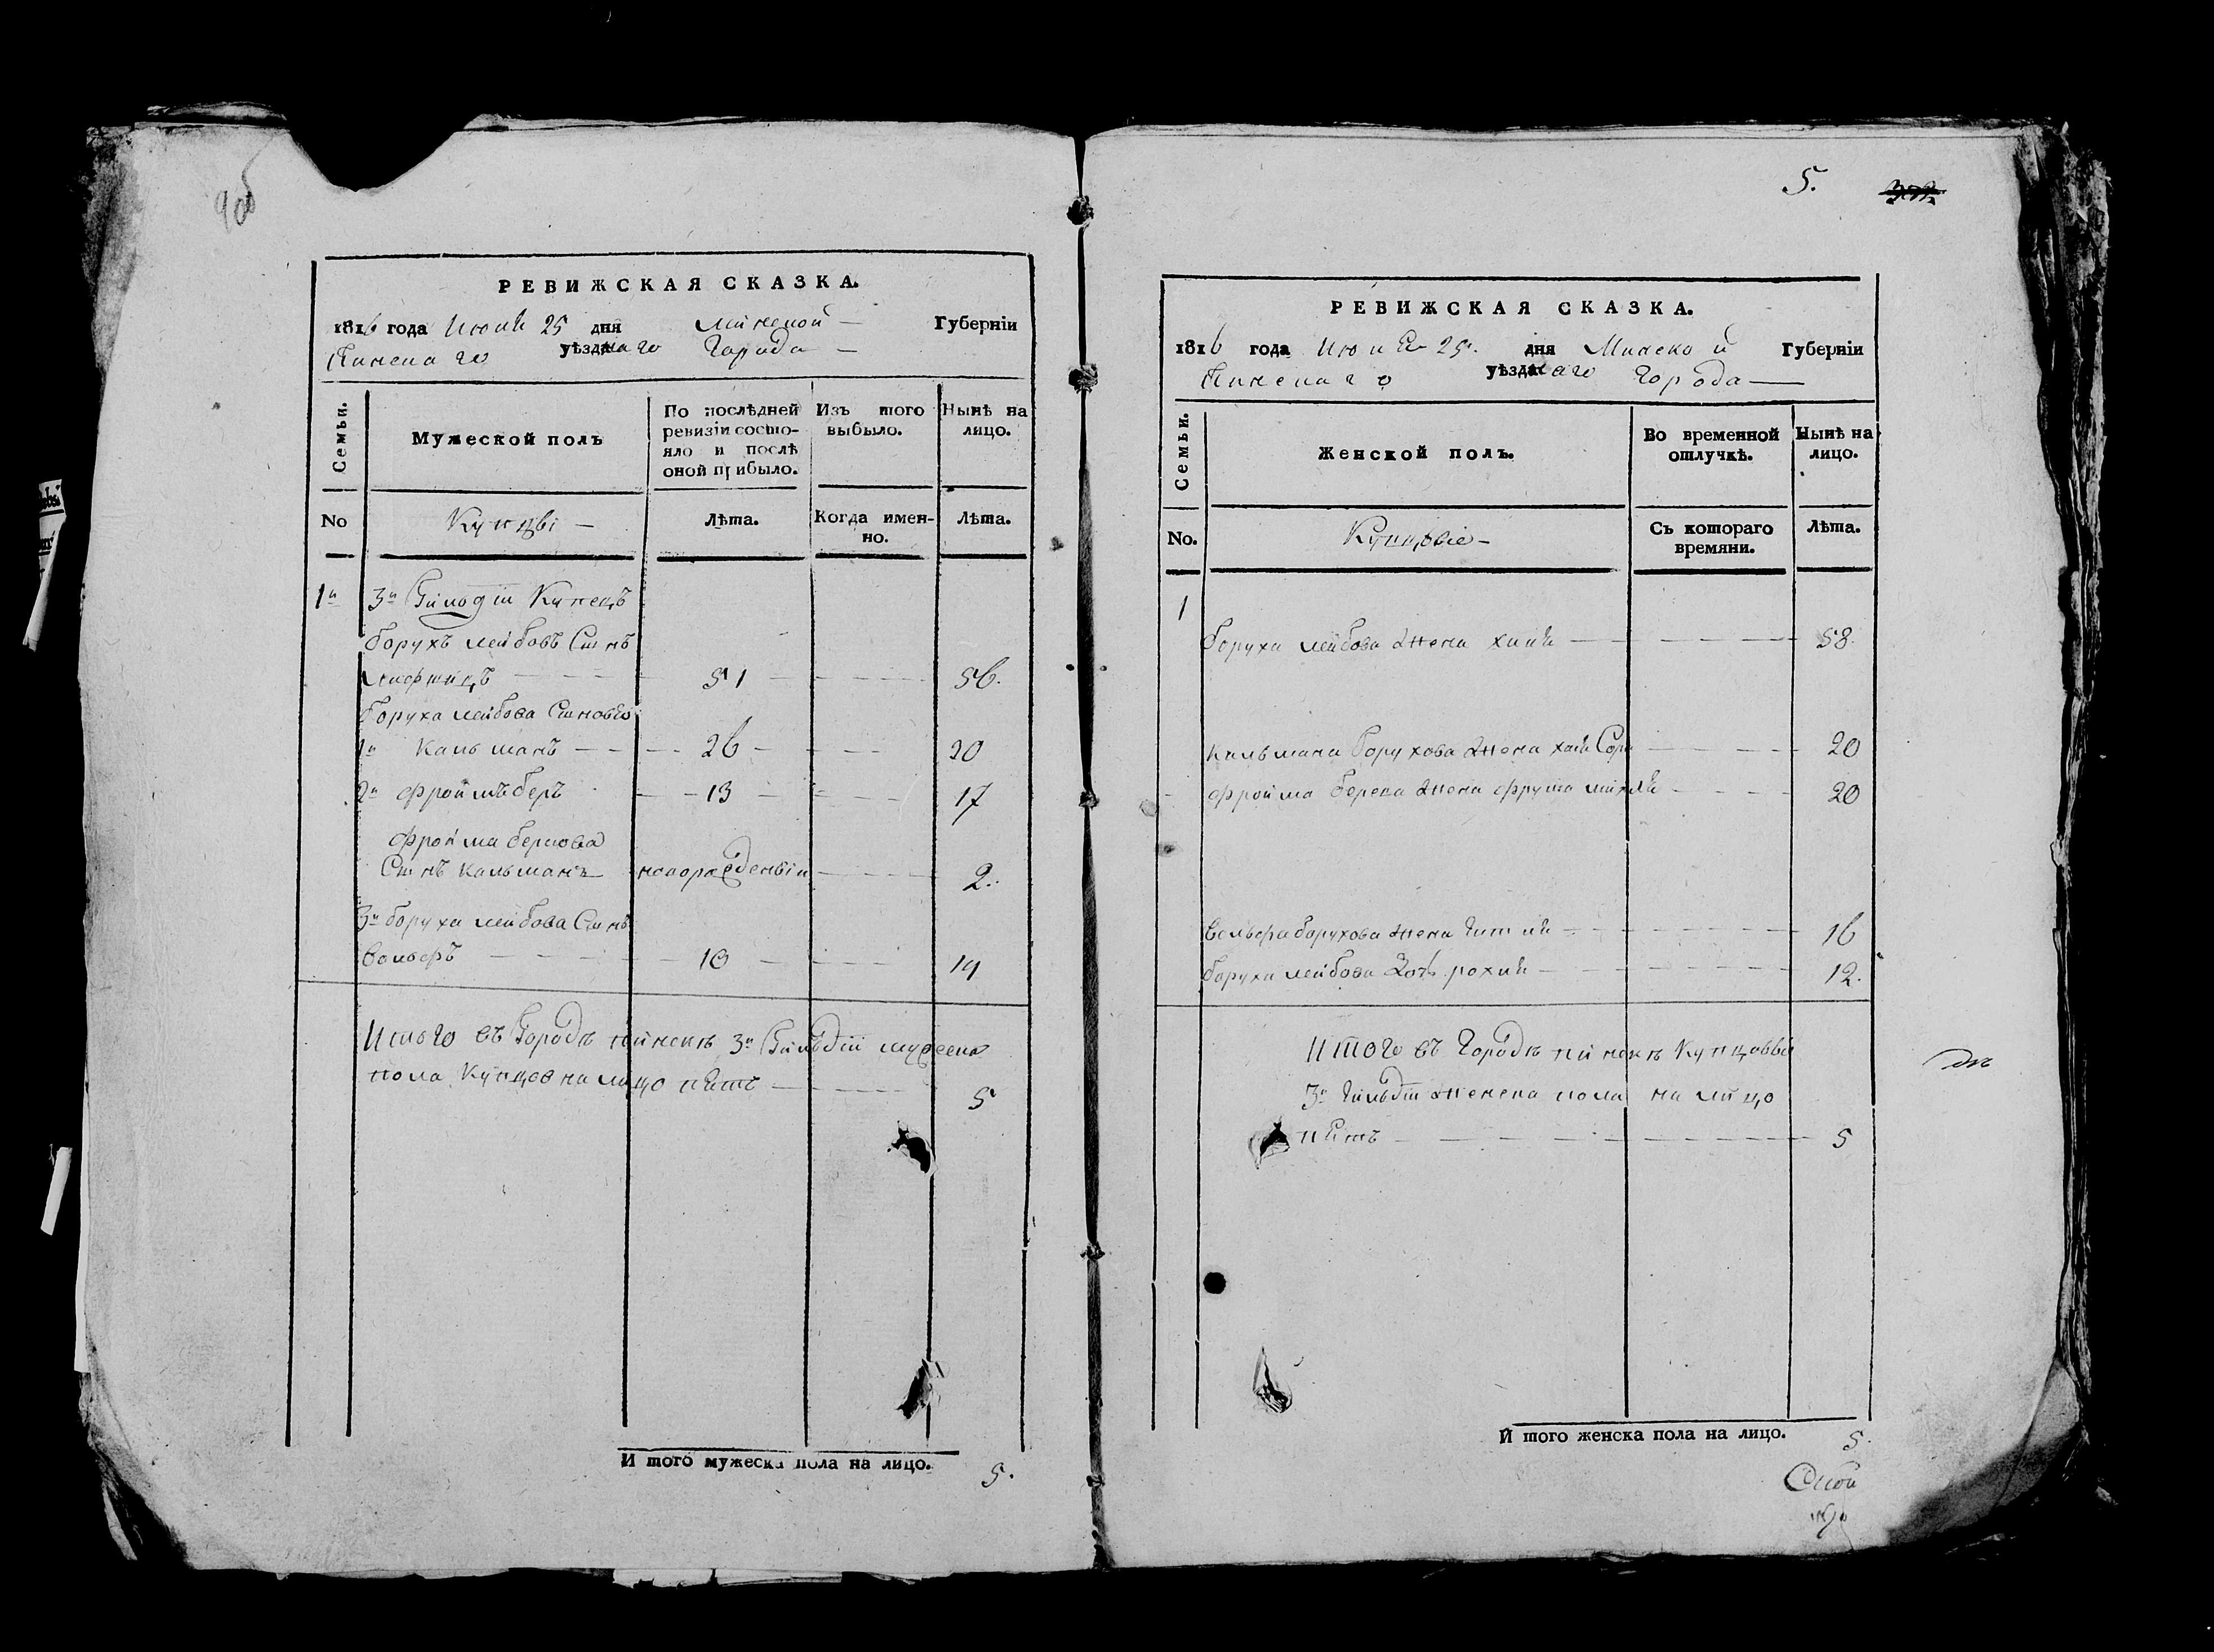 5.
РЕВИЖСКАЯ СКАЗКА.
1816 года Июня 25 дня Минской Губерніи
Пинскаго уѣзднаго Города
Семьи.
Мужеской полъ
По послѣдней ревизіи состояло и послѣ оной прибыло.
Изъ того выбыло.
Нынѣ на лицо.
No
Купцы
Лѣта.
Когда именно.
Лѣта.
1й 3й Гильдіи Купецъ
Борухъ Лейбовъ Сынъ
51 56.
Боруха Лейбова Сыновья
1й Кальманъ 26 30
2й Фроймъ Беръ 13 17
Фройма Беркова
Сынъ Кальманъ новорожденный 2.
3й Боруха Лейбова Сынъ
Вольфъ 10 14
Итого въ Городѣ Пинскѣ 3й Гильдіи мужеска
пола Купцов на лицо пять 5
И того мужеска пола на лицо. 5.
РЕВИЖСКАЯ СКАЗКА.
1816 года Июня 25. дня Минской Губерніи
Пинскаго уѣзднаго Города
Семьи.
Женской полъ.
Во временной отлучкѣ.
Нынѣ на лицо.
No.
Съ котораго времяни.
Лѣта.
1
Боруха Лейбова Жена Хиня 58.
Кальмана Борухова Жена Хая Сора 20
Фройма Берка Жена Фрума 20
Вольфа Борухова Жена Гитля 16
Боруха Лейбова Дочь Рохля 12.
Итого въ Городѣ Пинскѣ
3й Гильдіи Женска пола на лицо
пять 5
И того женска пола на лицо. 5.